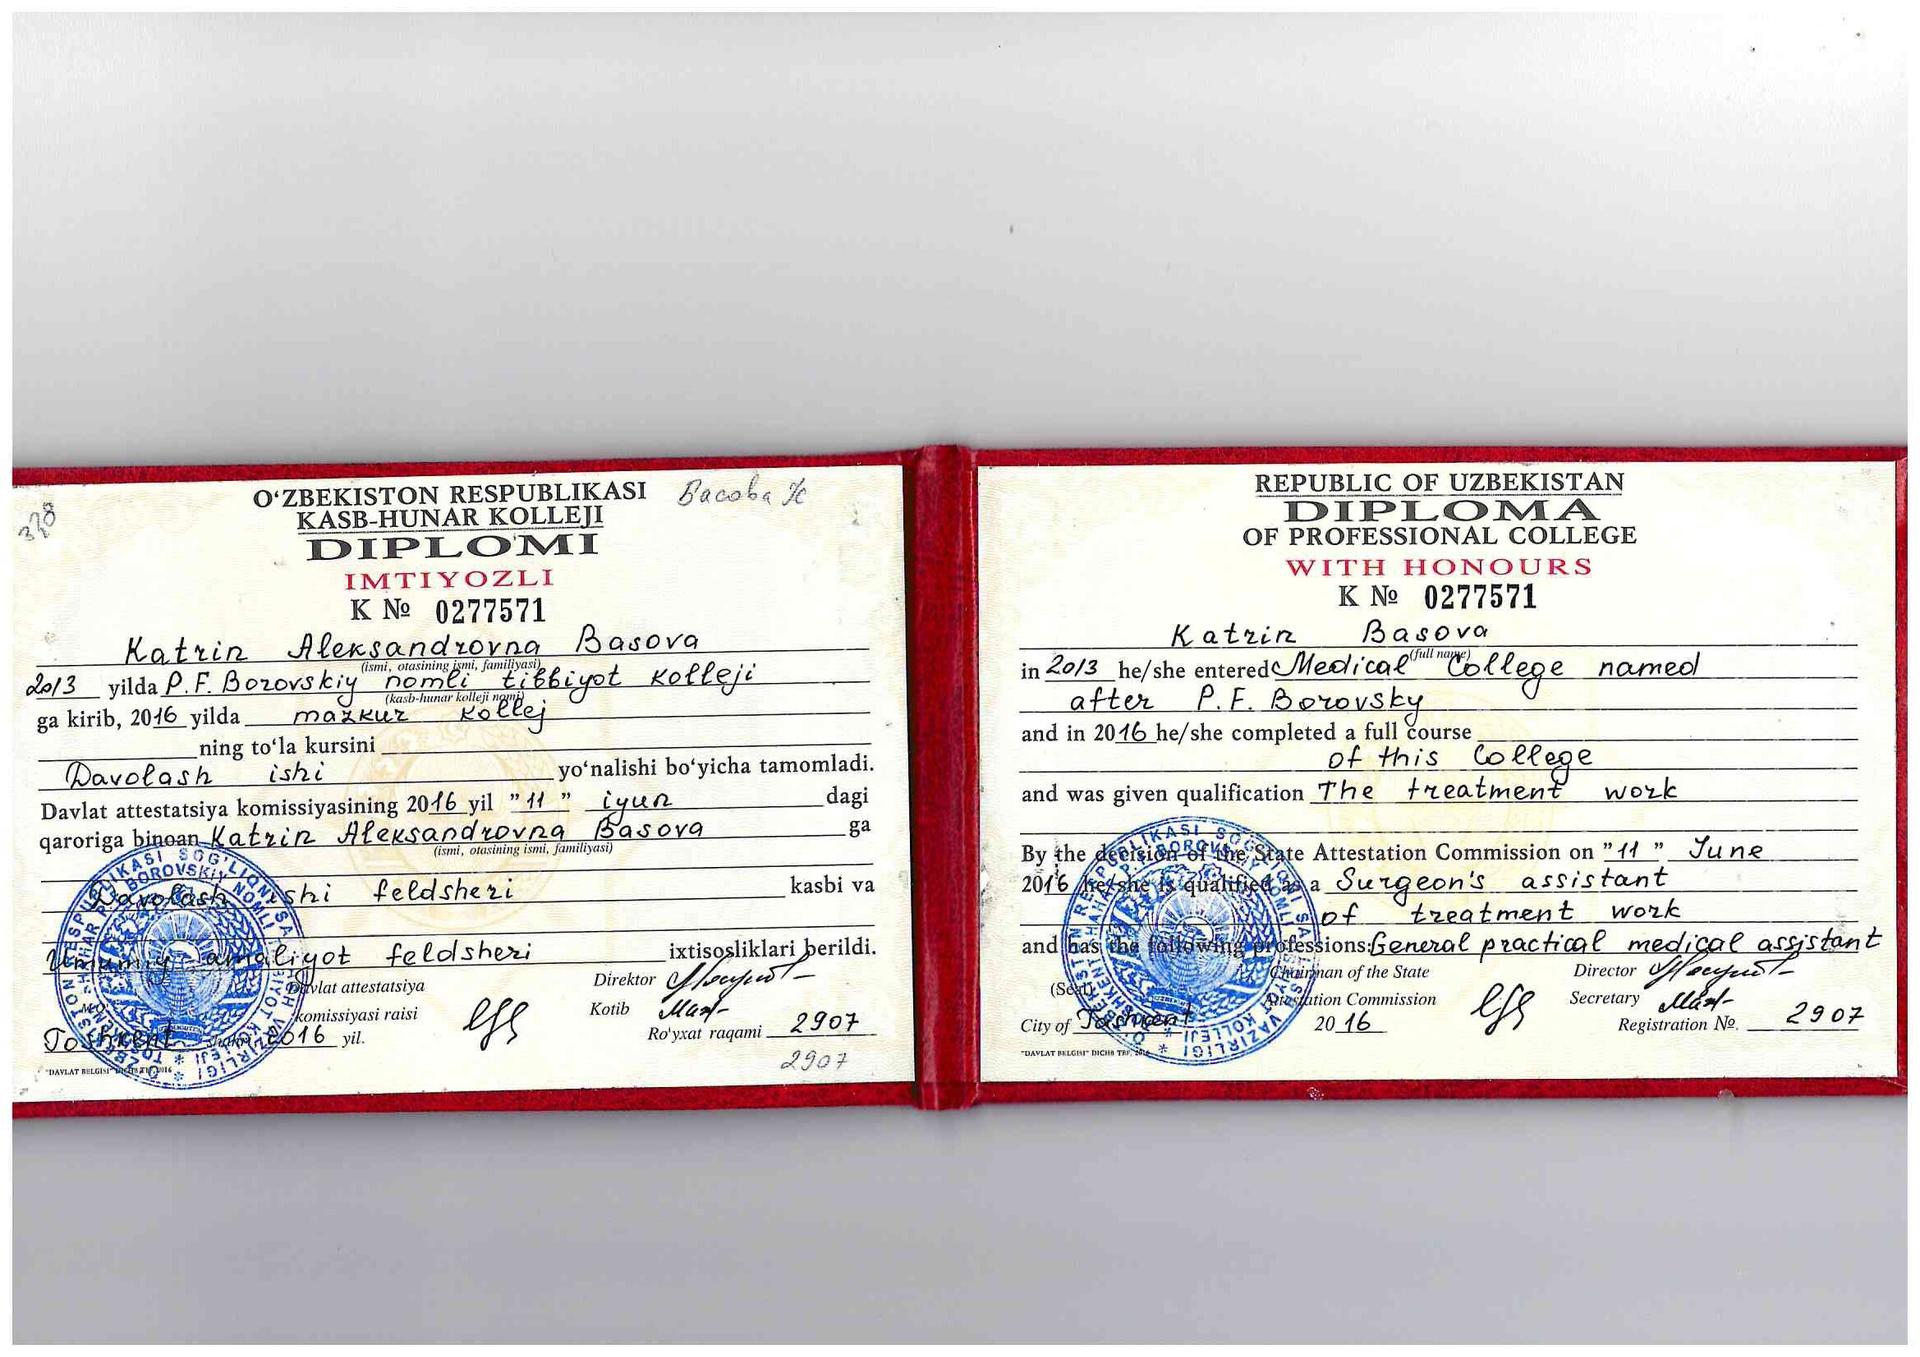 378
O‘ZBEKISTON RESPUBLIKASI
Басова К
KASB-HUNAR KOLLEJI
DIPLOMI
IMTIYOZLI
K № 0277571
Katrin Aleksandrovna Basova
(ismi, otasining ismi, familiyasi)
2013 yilda P.F. Borovskiy nomli tibbiyot kolleji
(kasb-hunar kolleji nomi)
ga kirib, 2016 yilda mazkur kollej
ning to‘la kursini
Davolash ishi yo‘nalishi bo‘yicha tamomladi.
Davlat attestatsiya komissiyasining 2016 yil "11" iyun dagi
qaroriga binoan Katrin Aleksandrovna Basova ga
(ismi, otasining ismi, familiyasi)
Davolash ishi feldsheri kasbi va
Umumiy amaliyot feldsheri ixtisosliklari berildi.
Davlat attestatsiya
Direktor
komissiyasi raisi
Kotib
Toshkent shahri 2016 yil.
Ro'yxat raqami 2907
2907
"DAVLAT BELGISI" DICHB TBF, 2016
REPUBLIC OF UZBEKISTAN
DIPLOMA
OF PROFESSIONAL COLLEGE
WITH HONOURS
K № 0277571
Katrin Basova
(full name)
in 2013 he/she entered Medical College named
after P.F. Borovsky
and in 2016 he/she completed a full course
of this College
and was given qualification The treatment work
By the decision of the State Attestation Commission on "11" June
2016 he/she is qualified as a Surgeon's assistant
of treatment work
and has the following professions: General practical medical assistant
Chairman of the State
Director
(Seal)
Attestation Commission
Secretary
City of Tashkent
2016
Registration №. 2907
"DAVLAT BELGISI" DICHB TBF, 2016